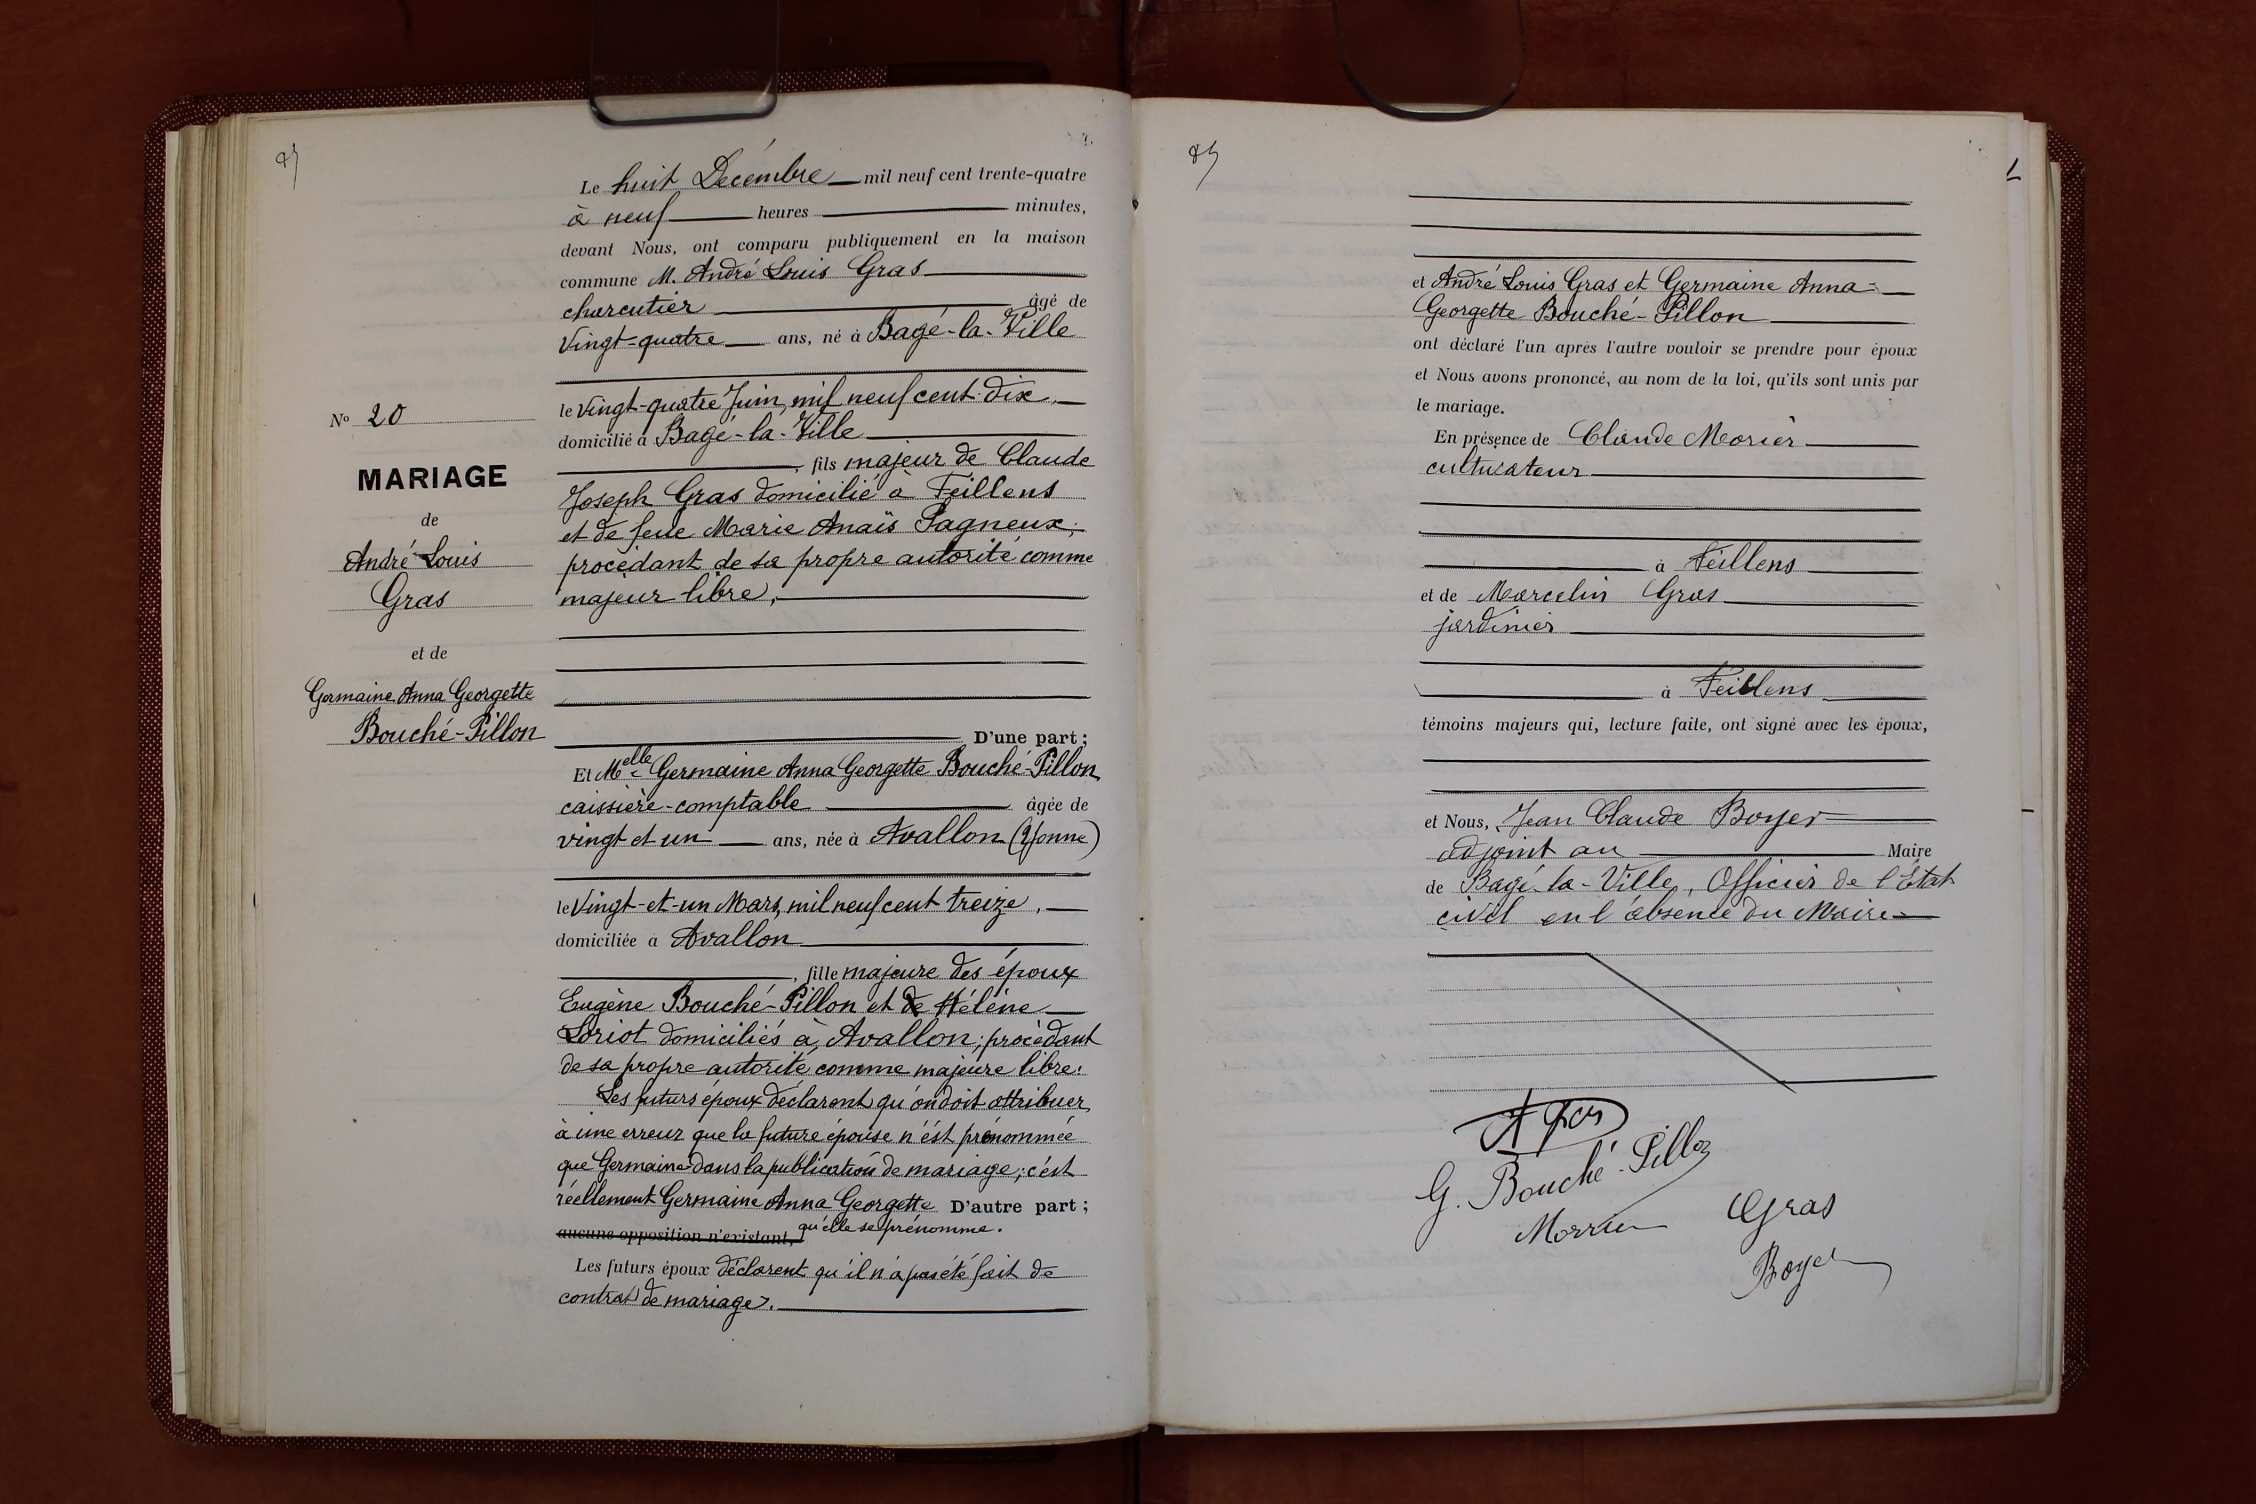 Le huit Décembre mil neuf cent trente-quatre
à neuf heures minutes,
devant Nous, ont comparu publiquement en la maison
commune M. André Louis Gras
charcutier âgé de
Vingt-quatre ans, né à Bagé-la-Ville
le Vingt-quatre Juin, mil neuf cent dix
domicilié à Bagé-la-Ville
, fils majeur de Claude
Joseph Gras domicilié à Feillens
et de feue Marie Anaïs Pagneux,
procédant de sa propre autorité comme
majeur libre,
D'une part ;
Et Melle Germaine Anna Georgette Bouché-Pillon
caissière-comptable âgée de
vingt et un ans, née à Avallon (Yonne)
le Vingt-et-un Mars, mil neuf cent treize,
domiciliée à Avallon
, fille majeure des époux
Eugène Bouché-Pillon et de Hélène
Loriot domiciliés à Avallon ; procédant
de sa propre autorité comme majeure libre.
Les futurs époux déclarent qu'on doit attribuer
à une erreur que la future épouse n'est prénommée
que Germaine dans la publication de mariage, c'est
réellement Germaine Anna Georgette D'autre part ;
aucune opposition n'existant, qu'elle se prénomme.
Les futurs époux déclarent qu'il n'a pas été fait de
contrat de mariage.
No 20
MARIAGE
de
André Louis
Gras
et de
Germaine Anna Georgette
Bouché-Pillon
et André Louis Gras et Germaine Anna
Georgette Bouché-Pillon
ont déclaré l'un après l'autre vouloir se prendre pour époux
et Nous avons prononcé, au nom de la loi, qu'ils sont unis par
le mariage.
En présence de Claude Morier
cultivateur
à Feillens
et de Marcelin Gras
jardinier
à Feillens
témoins majeurs qui, lecture faite, ont signé avec les époux,
et Nous, Jean Claude Boyer
adjoint au Maire
de Bagé-la-Ville, Officier de l'État
civil en l'absence du Maire
A Gras
G. Bouché-Pillon
Morier Gras
Boyer